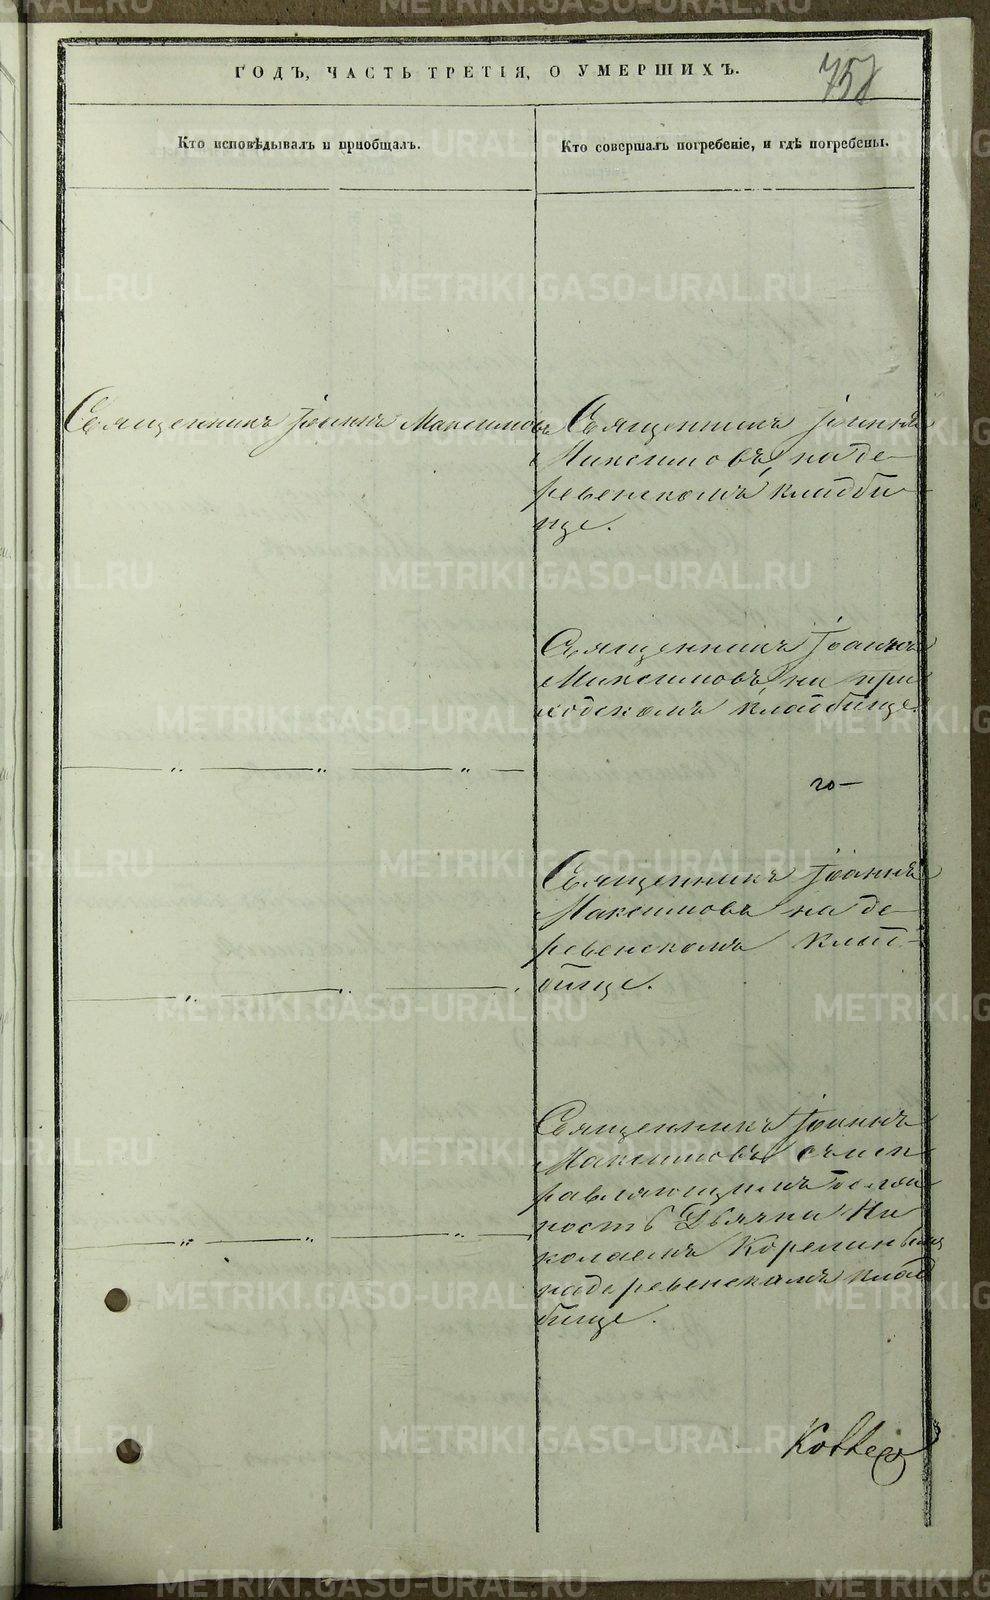 ГОДЪ, ЧАСТЬ ТРЕТІЯ, О УМЕРШИХЪ.
758
Кто исповѣдывалъ и приобщалъ.
Кто совершалъ погребеніе, и гдѣ погребены.
Священникъ Іоаннъ Максимовъ
Священникъ Іоаннъ
Максимовъ, на де-
ревенскомъ кладби-
ще.
Священникъ Іоаннъ
Максимовъ, на при
ходскомъ кладбище.
Священникъ Іоаннъ
Максимовъ на де-
ревенскомъ клад-
бище.
Священникъ Іоаннъ
Максимовъ съ исп
равляющимъ долж
ность Дьячка Ни
колаемъ
на деревенскомъ клад
бище.
METRIKI.GASO-URAL.RU